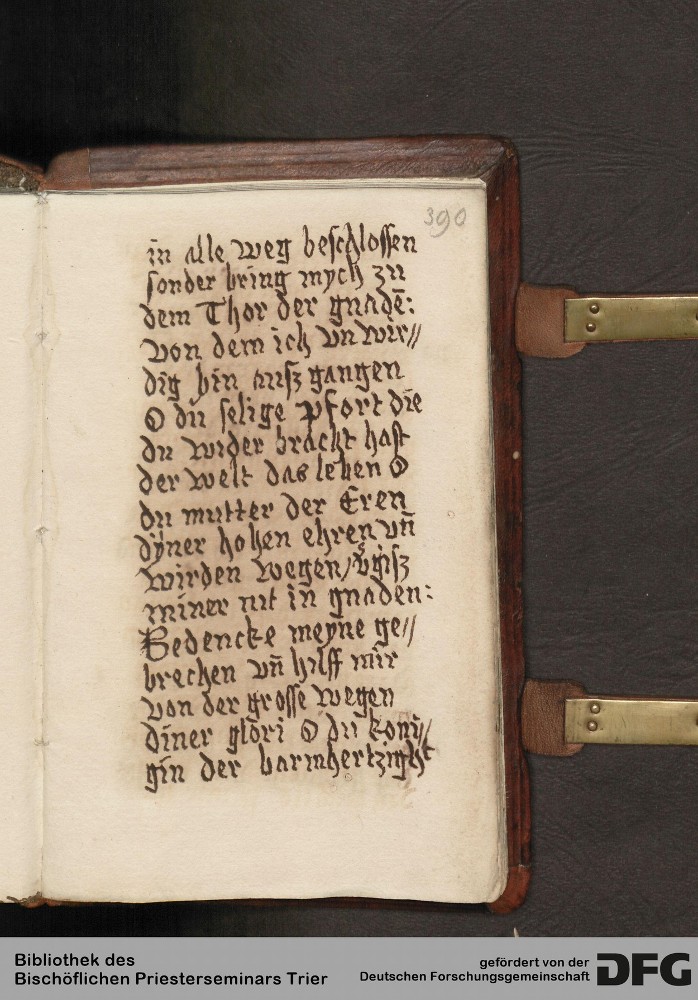 390
in alle weg beschlossen
sonder bring mych zu
dem Thor der gnadē:
von dem ich vn wir//
dig bin ausz gangen
O du selige pfort die
du wider bracht hast
der welt das leben O
du mutter der Eren
dyner hohen ehren vñ
wirden wegen/ vgisz
miner nit in gnaden:
Bedencke meyne ge//
brechen vñ hilff mir
von der grosse wegen
diner glori O du koni//
gin der barmhertzigkt
Bibliothek des
Bischöflichen Priesterseminars Trier
gefördert von der
Deutschen Forschungsgemeinschaft
DFG